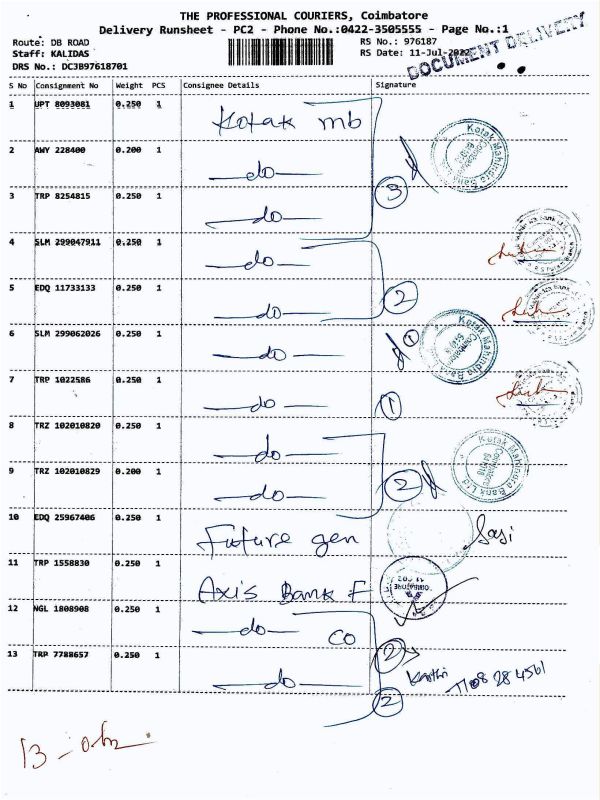 THE PROFESSIONAL COURIERS, Coimbatore
Delivery Runsheet - PC2 - Phone No.:0422-3505555 - Page No.:1
Route: DB ROAD RS No.: 976187
Staff: KALIDAS RS Date: 11-Jul-2022
DRS No.: DC3B97618701
DOCUMENT DELIVERY
S No Consignment No Weight PCS Consignee Details Signature
1 UPT 8093081 0.250 1 Kotak mb
Kotak Mahindra Bank
2 AWY 228400 0.200 1 do
3
3 TRP 8254815 0.250 1 do
4 SLM 299047911 0.250 1 do
5 EDQ 11733133 0.250 1 do 2
6 SLM 299062026 0.250 1 do 1
Kotak Mahindra Bank
Coimbatore
7 TRP 1022586 0.250 1 do 1
8 TRZ 102010820 0.250 1 do
Kotak Mahindra Bank Ltd
9 TRZ 102010829 0.200 1 do 2
10 EDQ 25967406 0.250 1 Future gen Sasi
11 TRP 1558830 0.250 1 Axis Bank F
COIMBATORE
12 NGL 1808908 0.250 1 do CO
2
13 TRP 7788657 0.250 1 do 2
13